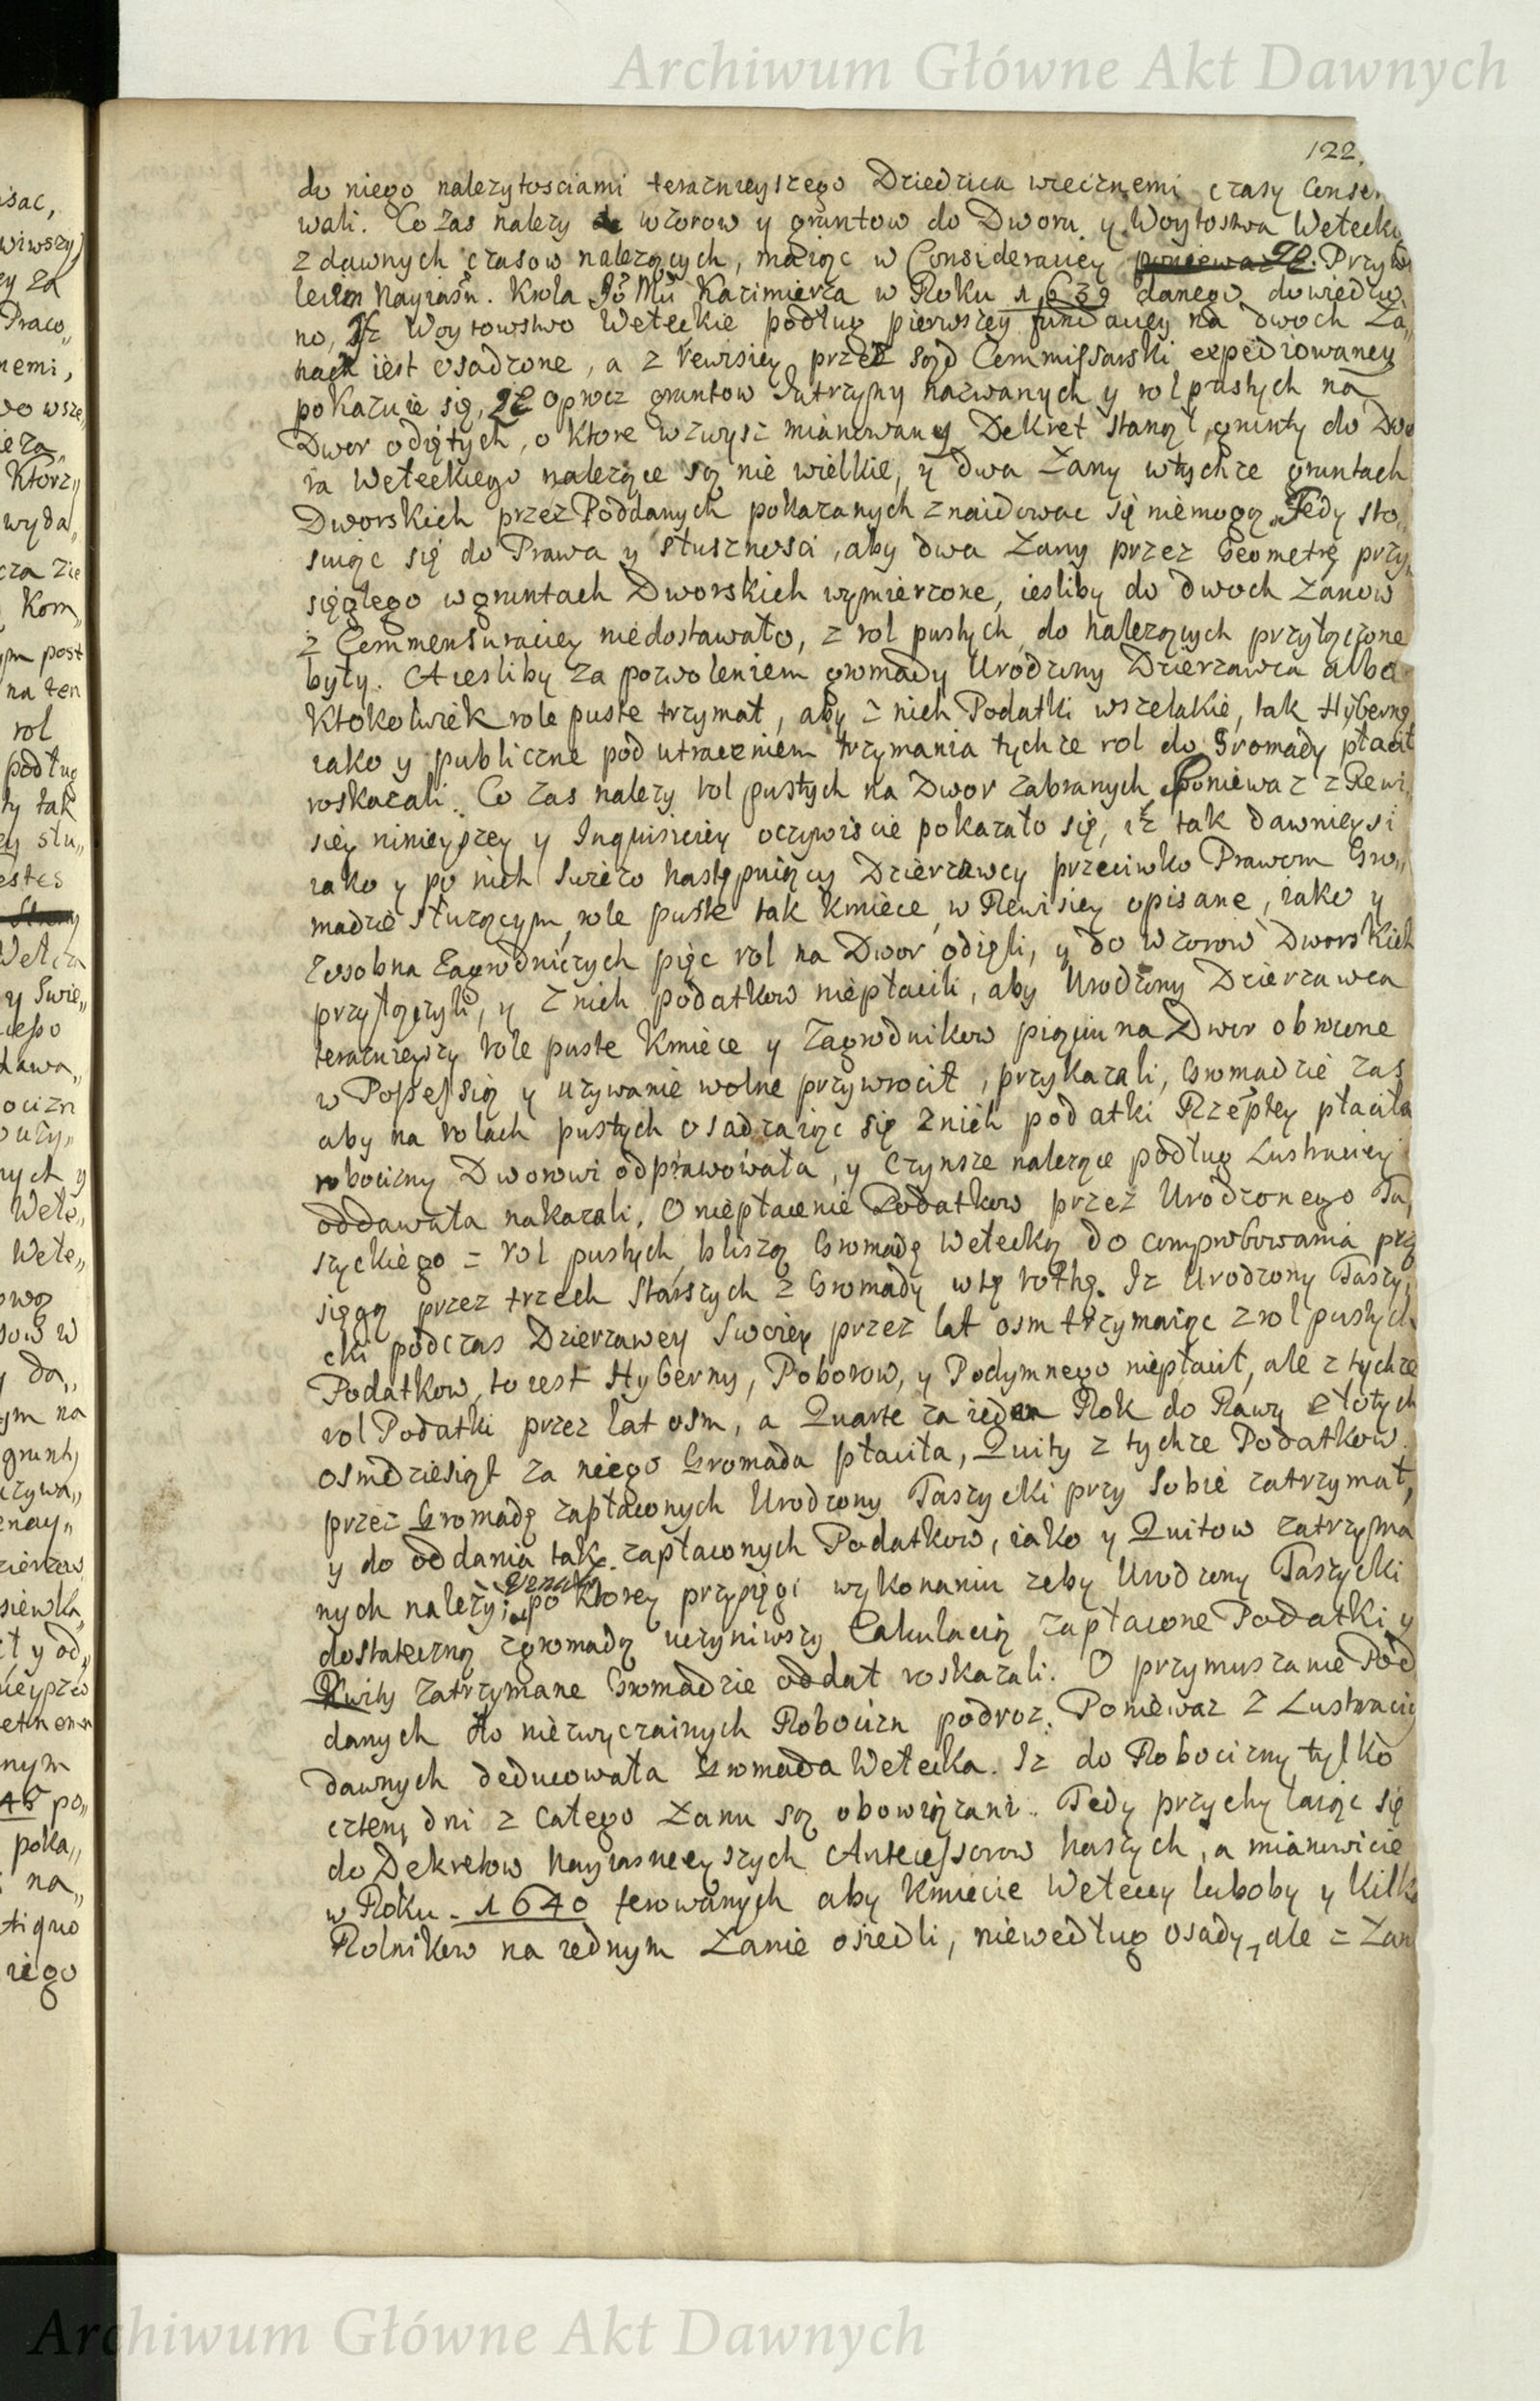 Archiwum Główne Akt Dawnych
122.
do niego nalezytosciami teraznieyszego Dziedzica wiecznemi czasy Conser
wali. Co zas nalezy wzorow y gruntow do Dworu y Woytostwa Wetecki
z dawnych czasow nalezących, maiąc w Consideraciey Ze Przywi
leiem Nayiaśn. Krola Jo Mci Kazimierza w Roku 1639 danego dowiedzio
no, Iz Woytowstwo Weteckie podług pierwszey fundaciey na dwoch Ła„
nach iest osadzone, a z rewisiey przez Sąd Commissarski expediowaney
pokazuie się, Ze oprocz gruntow Jutrzyny nazwanych y rol pustych na
Dwor odiętych, o ktore wzwysz mianowany Dekret stanął, grunty do Dwo
ra Weteckiego nalezące są nie wielkie, y dwa Łany wtychze gruntach
Dworskich przez Poddanych pokazanych znaidowac się niemogą, Tedy sto„
suiąc się do Prawa y słusznosci, aby dwa Łany przez Geometrę przy„
sięgłego w gruntach Dworskich wymierzone, iesliby do dwoch Łanow
z Commensuraciey niedostawało, z rol pustych do nalezących przyłączone
były. A iesliby za pozwoleniem gromady Urodzony Dzierzawca albo
Ktokolwiek role puste trzymał, aby z nich Podatki wszelakie, tak Hyberną
iako y publiczne pod utraceniem trzymania tychze rol do Gromady płacił
roskazali. Co zas nalezy rol pustych na Dwor zabranych, Poniewaz z Rewi„
siey ninieyszey y Inquisiciey oczywiscie pokazało się, iz tak dawnieysi
iako y po nich swiezo następuiący Dzierzawcy przeciwko Prawom Gro„
madzie słuzącym, role puste tak Kmiece w Rewisiey opisane, iako y
zosobna Zagrodniczych pięc rol na Dwor odięli, y do wzorow Dworskich
przyłączyli, y z nich podatkow niepłacili, aby Urodzony Dzierzawca
teraznieyszy role puste Kmiece y Zagrodnikow piąciu na Dwor obrocone
w Possessią y uzywanie wolne przywrocił, przykazali, Gromadzie zas
aby na rolach pustych osadzaiąc się z nich podatki Rzeptey płaciła
robocizny Dworowi odprawowała, y Czynsze nalezące podług Lustraciey
oddawała nakazali. O niepłacenie Podatkow przez Urodzonego Ta„
szyckiego z rol pustych, blizszą Gromadę Wetecką do comprobowania przy
sięgą przez trzech Starszych z Gromady w tę rothę. Iz Urodzony Taszy„
cki podczas Dzierzawey Swoiey przez lat osm trzymaiąc z rol pustych
Podatkow, to iest Hyberny, Poborow, y Podymnego niepłacił, ale z tychze
rol Podatki przez lat osm, a Quarte za ieden Rok do Rawy złotych
osmdziesiąt za niego Gromada płaciła, Quity z tychze Podatkow
przez Gromadę zapłaconych Urodzony Taszycki przy Sobie zatrzymał,
y do oddania tak zapłaconych Podatkow, iako y Quitow zatrzyma
nych nalezy; po ktorey przysięgi wykonaniu zeby Urodzony Taszycki
dostateczną zgromadą uczyniwszy Calculacią zapłacone Podatki y
Kwity zatrzymane Gromadzie oddał roskazali. O przymuszanie Pod
danych do niezwyczainych Robocizn podroz. Poniewaz z Lustraciy
dawnych deducowała Gromada Wetecka. Iz do Robocizny tylko
cztery dni z Całego Łanu są obowiązani. Tedy przychylaiąc się
do Dekretow Nayiasnieyszych Antecessorow naszych, a mianowicie
w Roku 1640 ferowanych aby Kmiecie Weteccy luboby y kilk
Rolnikow na iednym Łanie osiedli, niewedług osady, ale z Łan
Archiwum Główne Akt Dawnych